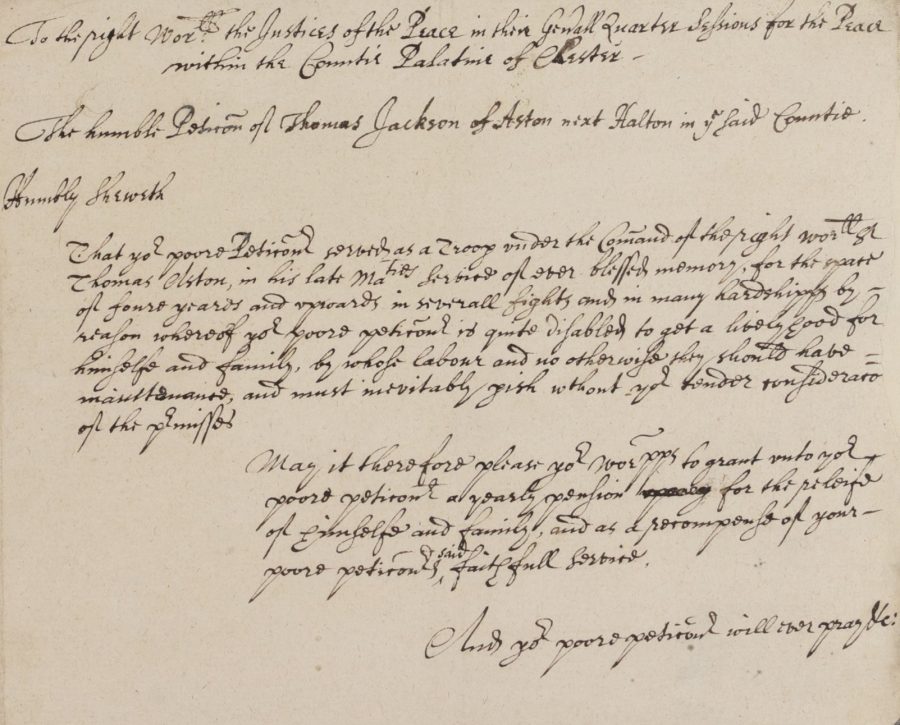 To the right Wor.ll the Justices of the Peace in their Gen'all Quarter Sessions for the Peace
within the Countie Palatine of Chester -
The humble Peticōn of Thomas Jackson of Aston next Halton in ye said Countie.
Humbly Sheweth
That yor poore Peticōnr served as a Troop vnder the Com̄and of the right worll Sr
Thomas Aston, in his late Maties Service of ever blessed memory, for the space
of foure yeares and vpwards in severall fights and in many hardshipps by =
reason whereof yor poore peticōnr is quite disabled to get a livelyhood for
himselfe and family, by whose labour and no otherwise they should have =
maintenance, and must inevitably pish wthout yor tender consideraco
of the pr misses
May it therefore please yor Worpps to grant vnto yor
poore peticōnr a yearly pension for the releife
of himselfe and family, and as a recompense of your -
poore peticōnrs said faithfull Service.
And yor poore peticōnr will ever pray &c: